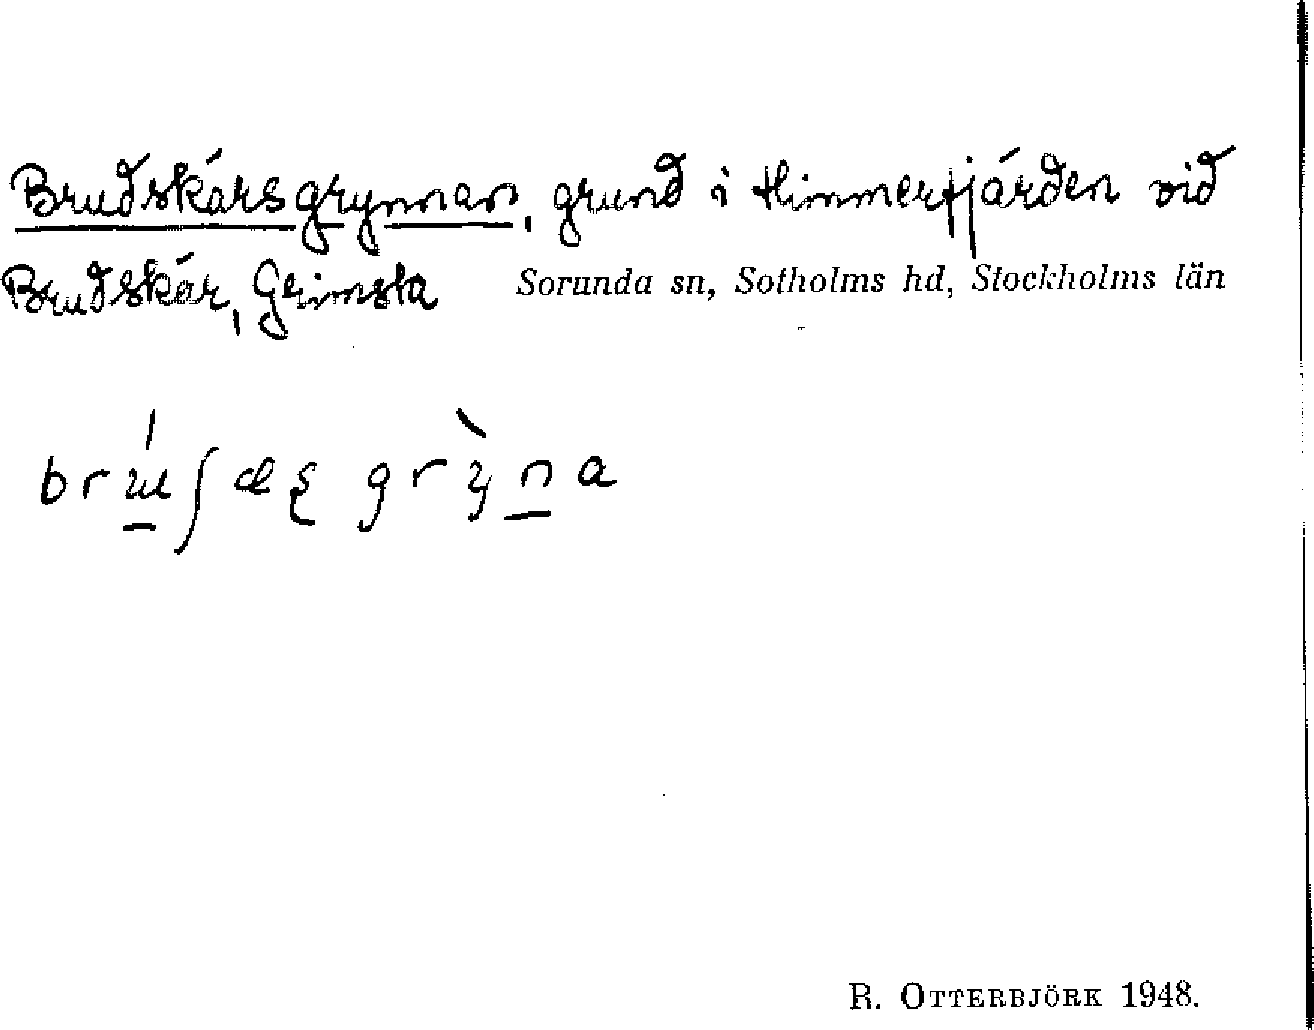 Brudskärsgrynnan, grund i Himmerfjärden vid
Brudskär, Grimsta Sorunda sn, Sotholms hd, Stockholms län
R. OTTERBJÖRK 1948.